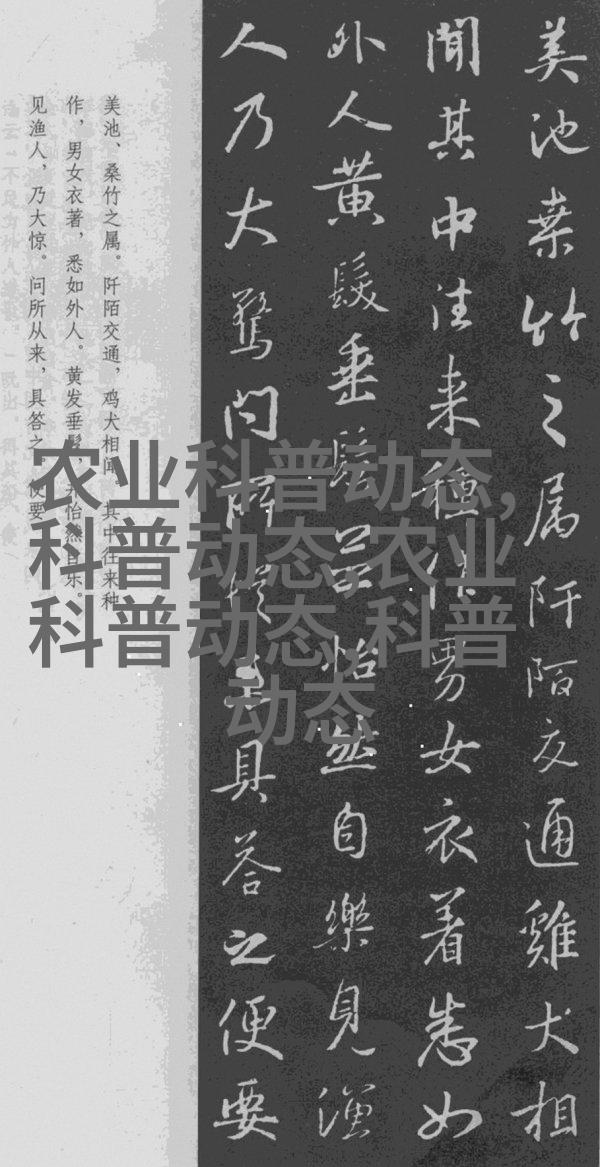 美池桑竹之属阡陌交通雞犬相
聞其中往来種作男女衣着悉如
外人黄髮垂髫並怡然自樂見漁
人乃大驚問所從来具荅之便要
美池、桑竹之属。阡陌交通，鸡犬相闻。其中往来种
作，男女衣著，悉如外人。黄发垂髫，并怡然自乐。
见渔人，乃大惊。问所从来，具答之。便要
农业科普动态,
科普动态,农业
科普动态,科普
动态